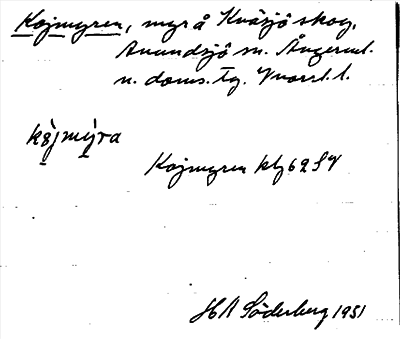 Kojmyren, myr å Kväsjö skog,
Anundsjö sn. Ångerml.
n. doms. tg. Vnorrl. l.
kòjmýra
Kojmyren kbl 62 SV
HA Söderberg 1951